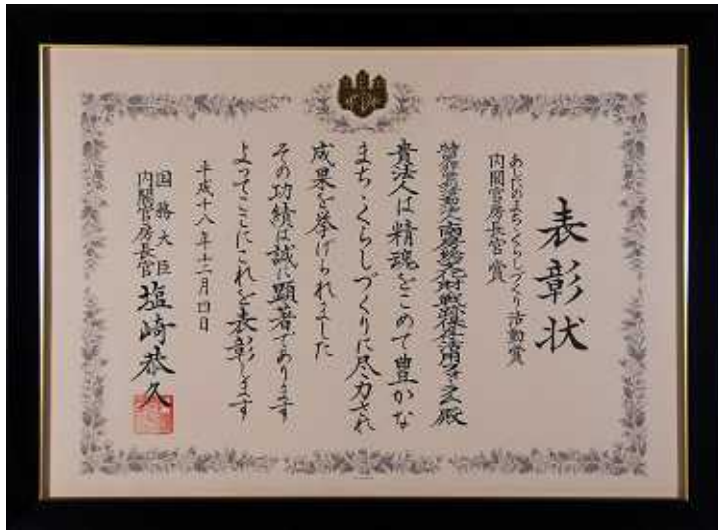 表彰状
あしたのまち・くらしづくり活動賞
内閣官房長官賞
特定非営利活動法人南房総文化財戦跡保存活用フォーラム殿
貴法人は精魂をこめて豊かな
まち・くらしづくりに尽力され
成果を挙げられました
その功績は誠に顕著であります
よってここにこれを表彰します
平成十八年十二月四日
国務大臣
内閣官房長官
塩崎恭久